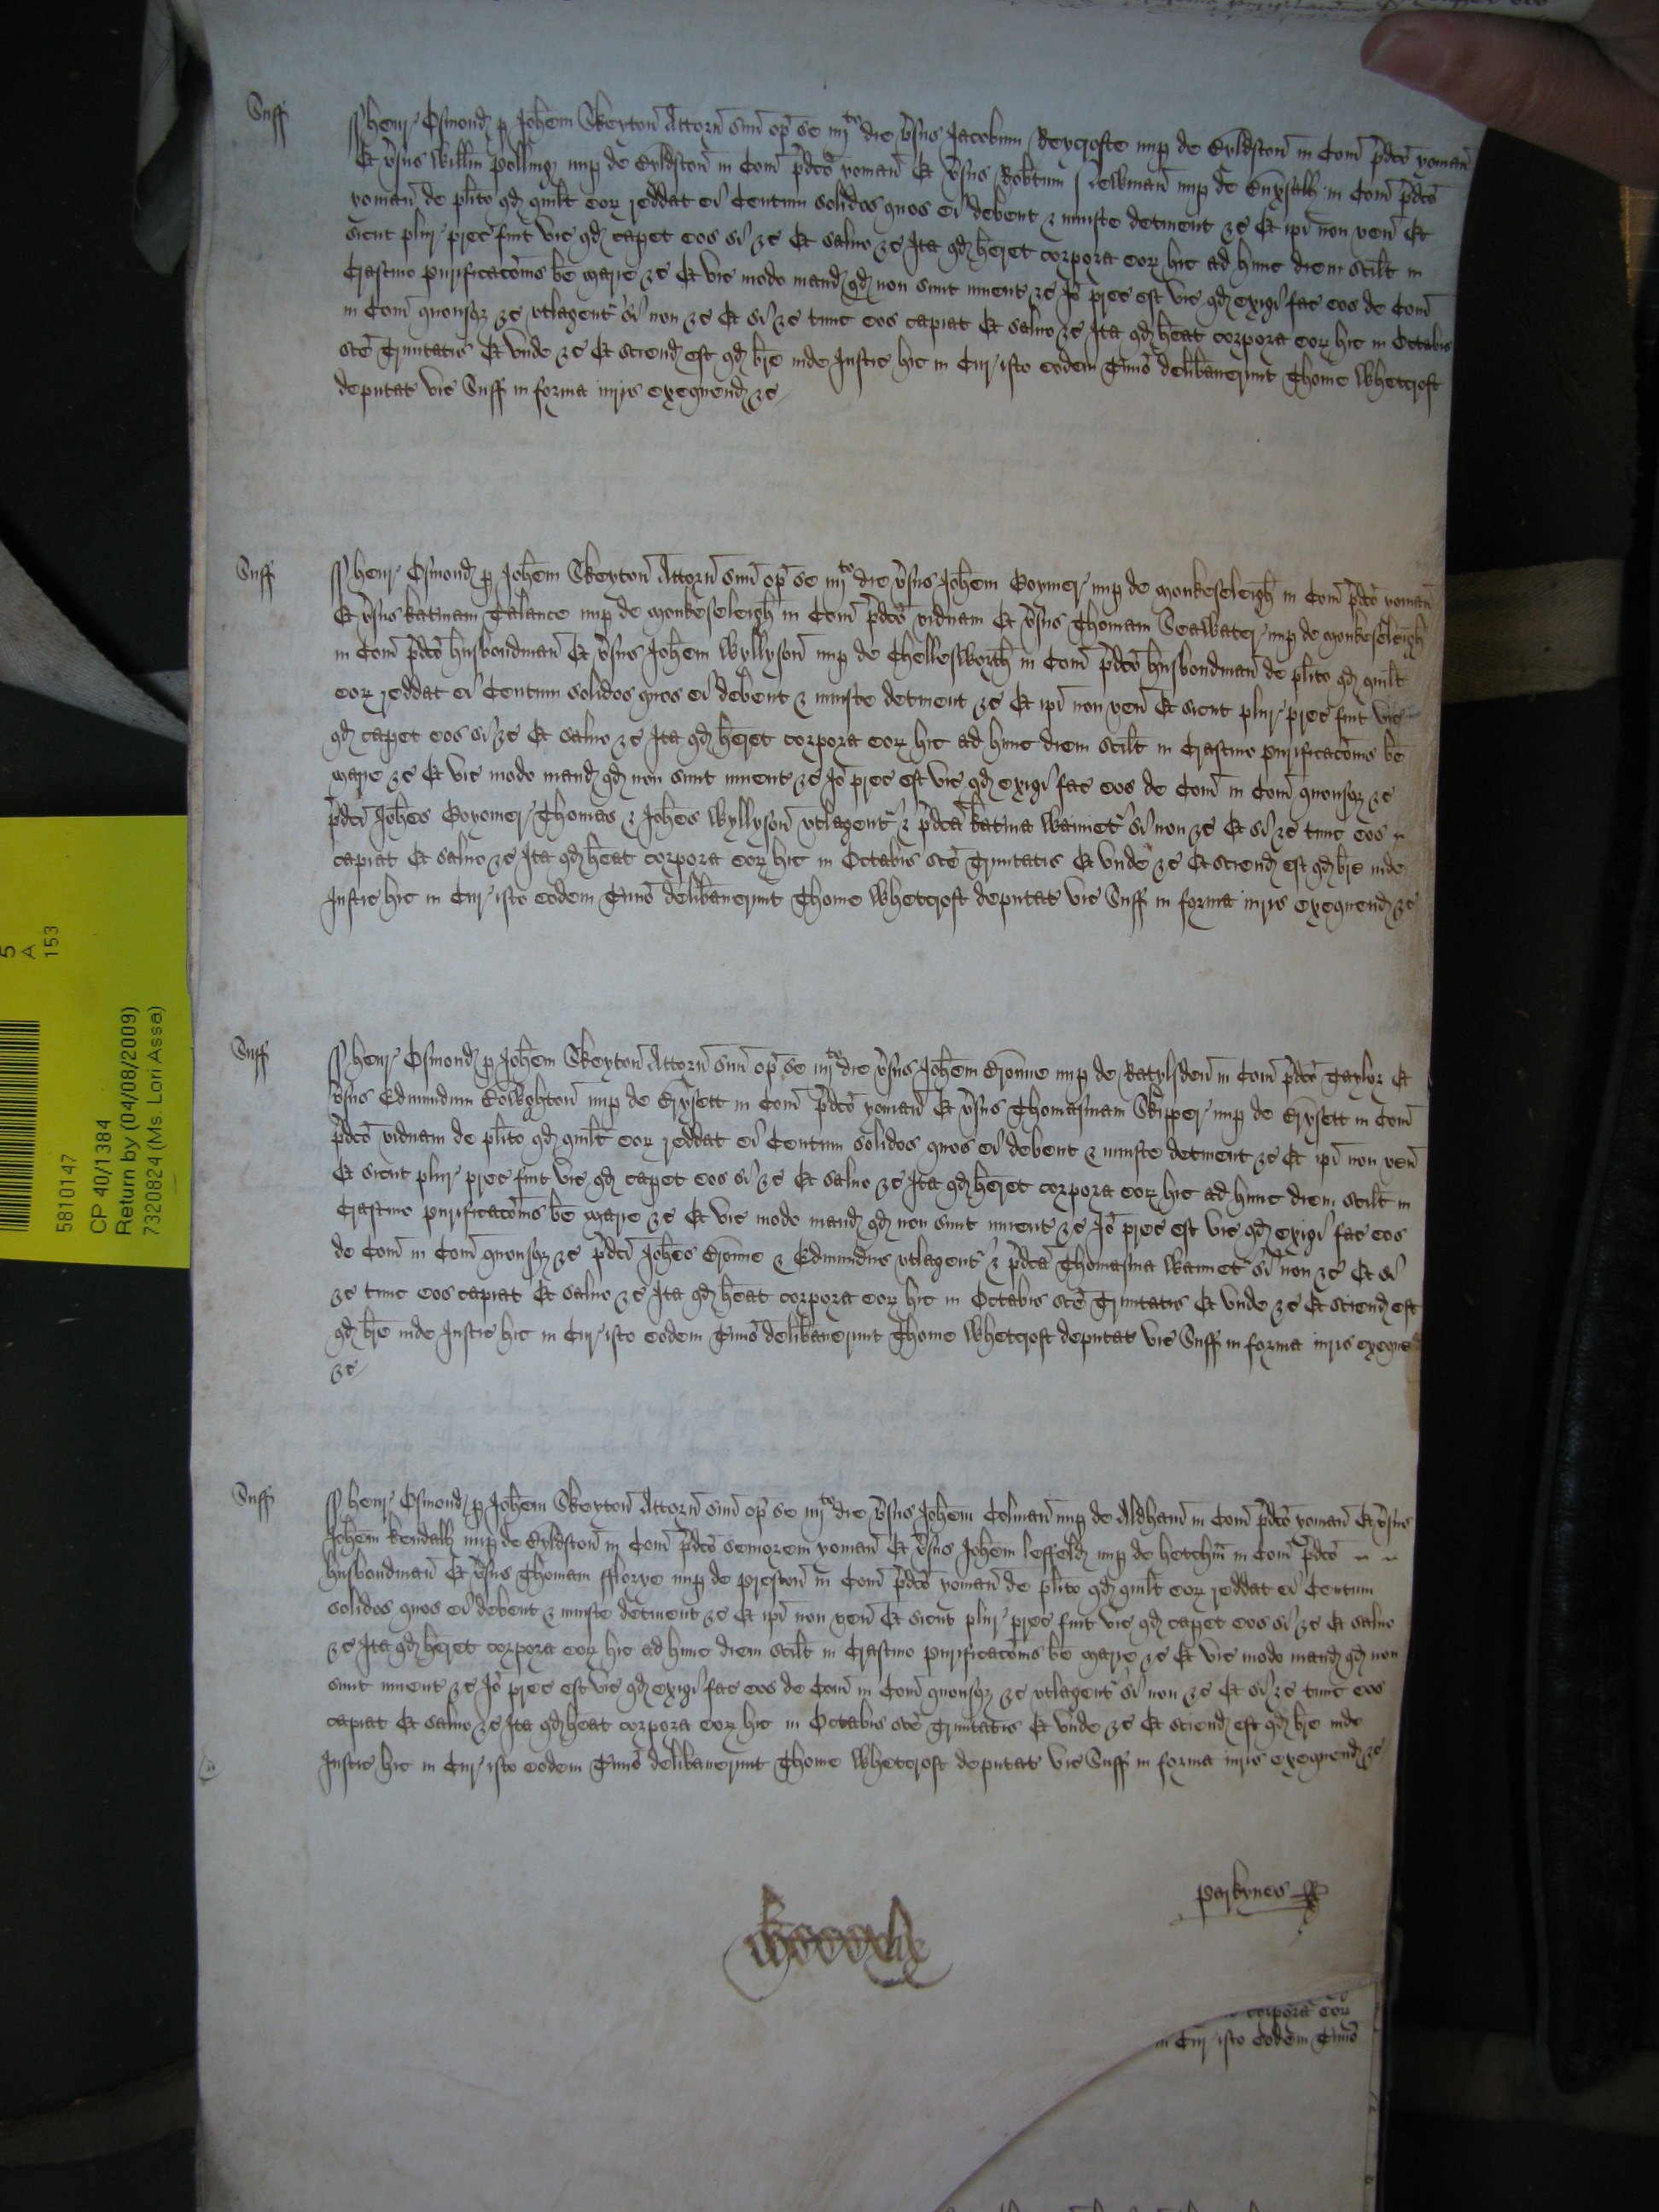 Suff
henr Osmond p Johem Skeyton Attorn suu op se iiijto die vsus Jacobum Reycrofte nup de Byldston in Com pdco yoman
Et vsus Willm Pollyng nup de Byldston in Com pdco yoman Et vsus Robtum Newman nup de in Com pdco
yoman de plito qd quilt eor reddat ei Centum solidos quos ei debent & iniuste detinent &c Et ipi non ven Et
sicut plur prec fuit vic qd capet eos si &c Et saluo &c Ita qd heret corpora eor hic ad hunc diem scilt in
Crastino purificacois be marie &c Et vic modo mand qd non sunt inuent &c Jo prec est vic qd exigi fac eos de Com
in Com quousq &c vtlagent si non &c Et si &c tunc eos capiat Et saluo &c Ita qd heat corpora eor hic in Octabis
sce Trinitatis Et vnde &c Et sciend est qd bre inde Justic hic in Cur isto eodem Tmio delibauerunt Thome Whetcroft
deputat vic Suff in forma iuris exequend &c
Suff
henr Osmond p Johem Skeyton Attorn suu op se iiijto die vsus Johem Boymer nup de monkeseleigh in Com pdco yoman
Et vsus katinam Talance nup de monkeseleigh in Com pdco viduam Et vsus Thomam Seawater nup de monkeseleigh
in Com pdco husbondman Et vsus Johem Wyllyson nup de Chellesworth in Com pdco husbondman de plito qd quilt
eor reddat ei Centum solidos quos ei debent & iniuste detinent &c Et ipi non ven Et sicut plur prec fuit vic
qd capet eos si &c Et saluo &c Ita qd heret corpora eor hic ad hunc diem scilt in Crastino purificacois be
marie &c Et vic modo mand qd non sunt inuent &c Jo prec est vic qd exigi fac eos de Com in Com quousq &c
pdci Johes Boyomer Thomas & Johes Wyllyson vtlagent & pdca katina Wainiet si non &c Et si &c tunc eos
capiat Et saluo &c Ita qd heat corpora eor hic in Octabis sce Trinitatis Et vnde &c Et sciend est qd bre inde
Justic hic in Cur isto eodem Tmio delibauerunt Thome Whetcroft deputat vic Suff in forma iuris exequend &c
Suff
henr Osmond p Johem Skeyton Attorn suu op se iiijto die vsus Johem Bronne nup de Ratylsden in Com pdco Taylor Et
vsus Edmundum Bowghton nup de Brysett in Com pdco yoman Et vsus Thomasinam Skipper nup de Brysett in Com
pdco viduam de plito qd quilt eor reddat ei Centum solidos quos ei debent & iniuste detinent &c Et ipi non ven
Et sicut plur prec fuit vic qd capet eos si &c Et saluo &c Ita qd heret corpora eor hic ad hunc diem scilt in
Crastino purificacois be marie &c Et vic modo mand qd non sunt inuent &c Jo prec est vic qd exigi fac eos
de Com in Com quousq &c pdci Johes Bronne & Edmundus vtlagent & pdca Thomasina Wainiet si non &c Et si
&c tunc eos capiat Et saluo &c Ita qd heat corpora eor hic in Octabis sce Trinitatis Et vnde &c Et sciend est
qd bre inde Justic hic in Cur isto eodem Tmio delibauerunt Thome Whetcroft deputat vic Suff in forma iuris
&c
Suff
henr Osmond p Johem Skeyton Attorn suu op se iiijto die vsus Johem Colman nup de Aldham in Com pdco yoman Et vsus
Johem kendall nup de Byldston in Com pdco seniorem yoman Et vsus Johem leffeld nup de hetchm in Com pdco
husbondman Et vsus Thomam fflorye nup de preston in Com pdco yoman de plito qd quilt eor reddat ei Centum
solidos quos ei debent & iniuste detinent &c Et ipi non ven Et sicut plur prec fuit vic qd capet eos si &c Et saluo
&c Ita qd heret corpora eor hic ad hunc diem scilt in Crastino purificacois be marie &c Et vic modo mand qd non
sunt inuent &c Jo prec est vic qd exigi fac eos de Com in Com quousq &c vtlagent si non &c Et si &c tunc eos
capiat Et saluo &c Ita qd heat corpora eor hic in Octabis sce Trinitatis Et vnde &c Et sciend est qd bre inde
Justic hic in Cur isto eodem Tmio delibauerunt Thome Whetcroft deputat vic Suff in forma iuris exequend &c
parkynes
corpora eor
in Cur isto eodem Tmio
5
A
153
5810147
CP 40/1384
Return by (04/08/2009)
7320824 (Ms. Lori Assa)